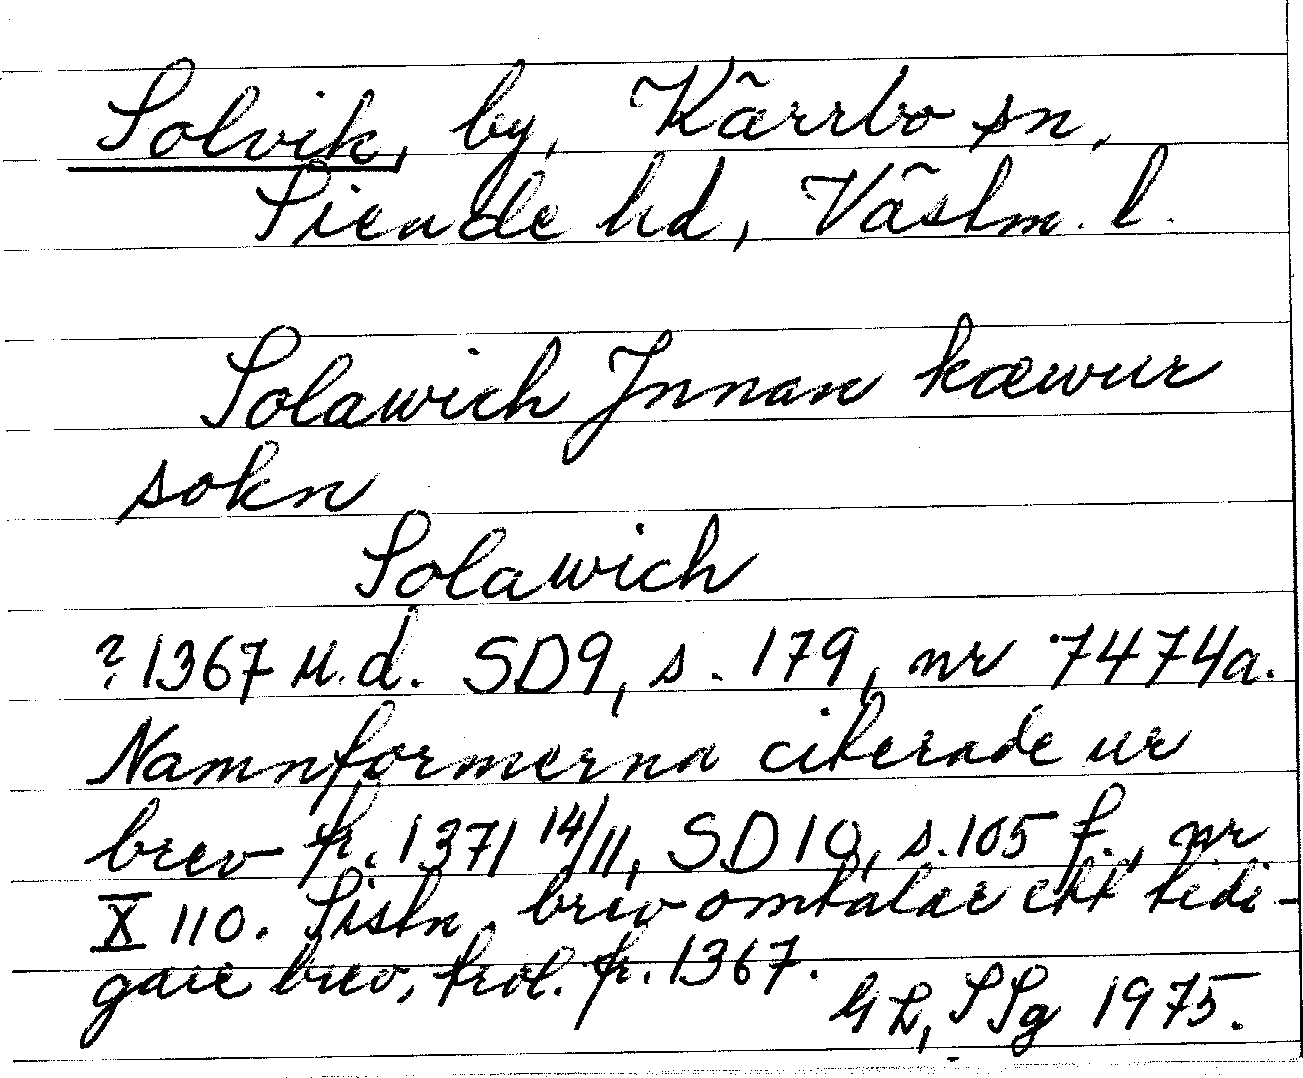 Solvik, by, Kärrbo sn,
Siende hd, Västm. l.
Solawich Jnnan kæwur
sokn
Solawich
? 1367 u.d. SD9, s. 179, nr 7474a.
Namnformerna citerade ur
brev fr. 1371 14/11, SD10, s. 105 f., nr
X 110. Sistn. brev omtalar ett tidi-
gare brev, trol. fr. 1367.
GL, SSg 1975.